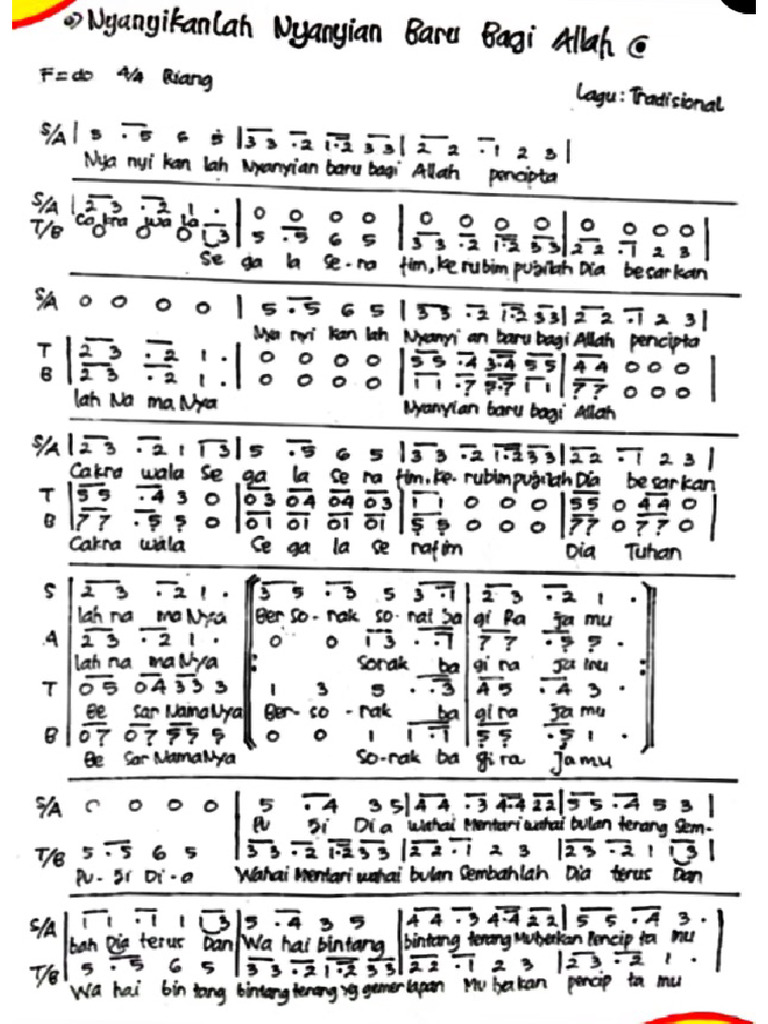 Nyanyikanlah Nyanyian Baru Bagi Allah
F = do 4/4 Riang
Lagu: Tradisional
S/A | 5 . 5 6 5 | 3 3 . 2 1 . 2 3 3 | 2 2 . 1 2 3 |
Nya nyi kan lah Nyanyian baru bagi Allah pencipta
S/A | 2 3 . 2 1 . | 0 0 0 0 | 0 0 0 0 | 0 0 0 0 |
Cakra wa la
T/B 0 0 0 1 3 | 5 . 5 6 5 | 3 3 . 2 1 . 2 3 3 | 2 2 . 1 2 3 |
Se ga la se - ra fim, ke rubim pujilah Dia besarkan
S/A 0 0 0 0 | 5 . 5 6 5 | 3 3 . 2 1 . 2 3 3 | 2 2 . 1 2 3 |
Nya nyi kan lah Nyanyi an baru bagi Allah pencipta
T | 2 3 . 2 1 . | 0 0 0 0 | 5 5 . 4 3 . 4 5 5 | 4 4 0 0 0 |
B | 2 3 . 2 1 . | 0 0 0 0 | 1 1 . 7 . 7 1 1 | 7 7 0 0 0 |
lah Na ma Nya Nyanyian baru bagi Allah
S/A | 2 3 . 2 1 1 3 | 5 . 5 6 5 | 3 3 . 2 1 . 2 3 3 | 2 2 . 1 2 3 |
Cakra wala Se ga la se ra fim, ke. rubim pujilah Dia besarkan
T | 5 5 . 4 3 0 | 0 3 0 4 0 4 0 3 | 1 1 0 0 0 | 5 5 0 4 4 0 |
B | 7 7 . 5 5 0 | 0 1 0 1 0 1 0 1 | 5 5 0 0 0 | 7 7 0 7 7 0 |
Cakra wala Se ga la se rafim Dia Tuhan
S | 2 3 . 2 1 . | 3 5 . 3 5 3 . 1 | 2 3 . 2 1 . |
lah na ma Nya Ber so - rak so - rai ba gi Ra ja mu
A | 2 3 . 2 1 . | 0 0 1 3 . . 1 | 7 7 . 5 5 . |
lah na ma Nya Sorak ba gi ra ja mu
T | 0 5 0 4 3 3 3 | 1 3 5 . . 3 | 4 5 . 4 3 . |
Be sar Nama Nya Ber - so - rak ba gi ra ja mu
B | 0 7 0 7 5 5 5 | 0 0 1 1 . 1 | 5 5 . 5 1 . |
Be sar Nama Nya So - rak ba gi ra ja mu
S/A 0 0 0 0 | 5 . 4 3 5 | 4 4 . 3 4 . 4 2 2 | 5 5 . 4 5 3 |
Pu Ji Dia wahai Mentari wahai bulan terang Sem-
T/B 5 . 5 6 5 | 3 3 . 2 1 . 2 3 3 | 2 2 . 1 2 3 | 2 3 . 2 1 1 3 |
Pu - Ji Di - a Wahai Mentari wahai bulan Sembahlah Dia terus Dan
S/A | 1 1 . 1 1 3 | 5 . 4 3 5 | 4 4 . 3 4 . 4 2 2 | 5 5 . 4 3 . |
bah Dia terus Dan Wa hai bintang bintang terang Muberkan Pencip ta mu
T/B | 5 . 5 6 5 | 3 3 . 2 1 . 2 3 3 | 2 2 . 1 2 3 | 2 3 . 2 1 . |
Wa hai bin tang bintang terang yg gemerlapan Mu berkan pencip ta mu